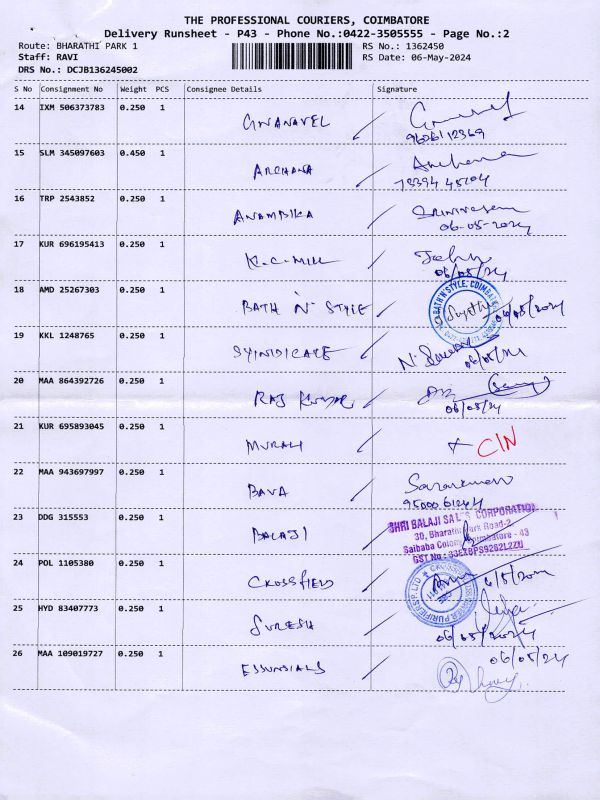 THE PROFESSIONAL COURIERS, COIMBATORE
Delivery Runsheet - P43 - Phone No.:0422-3505555 - Page No.:2
Route: BHARATHI PARK 1 RS No.: 1362450
Staff: RAVI RS Date: 06-May-2024
DRS No.: DCJB136245002
S No Consignment No Weight PCS Consignee Details Signature
14 IXM 506373783 0.250 1 GNANAVEL
9606112369
15 SLM 345097603 0.450 1 ARCHANA Archana
78394 45204
16 TRP 2543852 0.250 1 ANAMDIKA Srinivasan
06-05-2024
17 KUR 696195413 0.250 1 K.C-MILL John
06/05/24
18 AMD 25267303 0.250 1 BATH N STYLE BATH'N'STYLE, COIMBATORE 06/05/2024
19 KKL 1248765 0.250 1 SYINDICATE
06/05/24
20 MAA 864392726 0.250 1 RAJ KUMAR
06/05/24
21 KUR 695893045 0.250 1 MURALI CIN
22 MAA 943697997 0.250 1 BAVA Saravanan
95000 61244
23 DDG 315553 0.250 1 BALAJI SHRI BALAJI SALES CORPORATION
30, Bharathi Park Road-2
Saibaba Colony, Coimbatore - 43
GST No :
24 POL 1105380 0.250 1 CROSSFIELD 6/5/2024
25 HYD 83407773 0.250 1 SURESH
06/05/2024
26 MAA 109019727 0.250 1 ESSUNSIALS 06/05/24